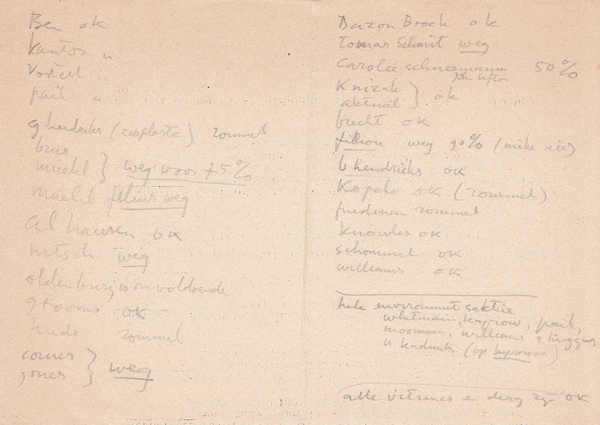 Ben ok
Kantor "
Vostell "
paik "
g hendricks (ecoplasta) rommel
brus
muehl } weg voor 75%
muehl films weg
al hansen ok
nitsch weg
oldenburg is onvoldoende
grooms ok
rommel
corner
jones } weg
Dazon Brock ok
Tomas Schmit weg
carolee schneemann 50%
Knizak
aktual } ok
brecht ok
filliou weg 90% (mike
b hendricks ok
Kopcke ok (rommel)
friedman rommel
Knowles ok
schommel ok
williams ok
hele environment sektie
whitman, kaprow, paik,
moorman, williams, higgins
(op
alle vitrines e derg zijn OK